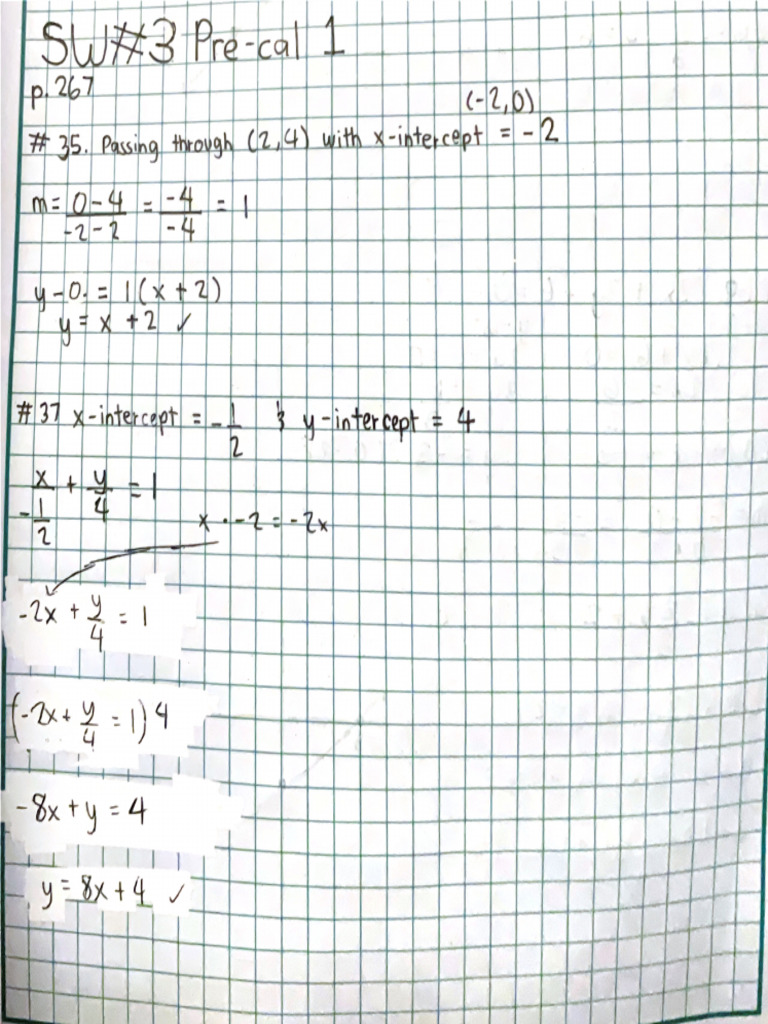 SW#3 Pre-cal 1
p. 267
(-2,0)
# 35. Passing through (2,4) with x-intercept = -2
m= 0-4/-2-2 = -4/-4 = 1
y-0. = 1(x+2)
y= x +2 ✓
#37 x-intercept = -1/2 & y-intercept = 4
x/-1/2 + y/4 = 1
x · -2 = -2x
-2x + y/4 = 1
(-2x + y/4 = 1)4
-8x + y = 4
y = 8x + 4 ✓